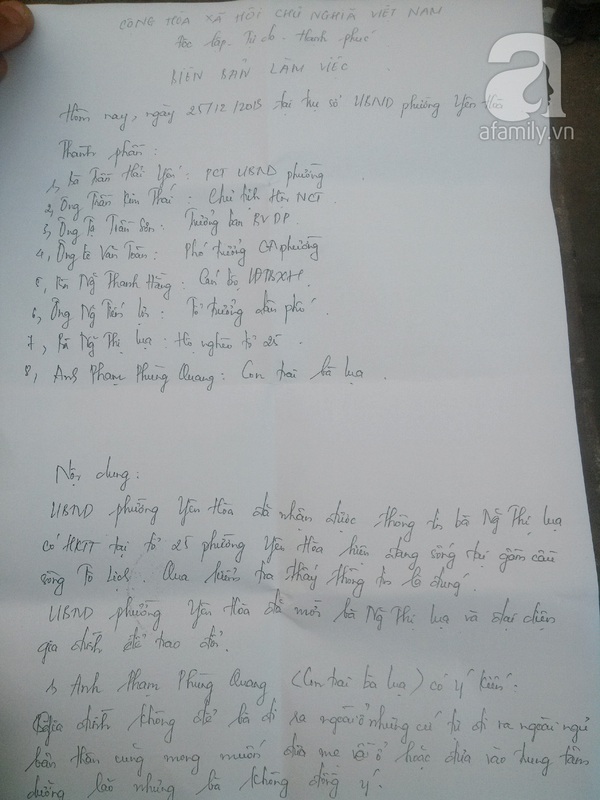 CỘNG HÒA XÃ HỘI CHỦ NGHĨA VIỆT NAM
Độc lập - Tự do - Hạnh phúc
BIÊN BẢN LÀM VIỆC
a
afamily.vn
Hôm nay, ngày 25/12/2013 tại trụ sở UBND phường Yên Hòa
Thành phần:
1, Bà Trần Hải Yến: PCT UBND phường
2, Ông Trần Kim Thái: Chủ tịch Hội NCT.
3, Ông Tạ Trần Sơn: Trưởng ban BVDP.
4, Ông Lê Văn Toàn: Phó trưởng CA phường
5, Bà Ng Thanh Hằng: Cán bộ LĐTBXH.
6, Ông Ng Tiến: Tổ trưởng dân phố.
7, Bà Ng Thị Lụa: Hộ nghèo tổ 25.
8, Anh Phạm Phùng Quang: Con trai bà Lụa.
Nội dung:
UBND phường Yên Hòa đã nhận được thông tin bà Ng Thị Lụa
có HKTT tại tổ 25 phường Yên Hòa hiện đang sống tại gầm cầu
sông Tô Lịch. Qua kiểm tra thấy thông tin là đúng.
UBND phường Yên Hòa đã mời bà Ng Thị Lụa và đại diện
gia đình để trao đổi.
1, Anh Phạm Phùng Quang (Con trai bà Lụa) có ý kiến.
Gia đình không để bà đi ra ngoài ở nhưng cứ tự đi ra ngoài ngủ
bản thân cũng mong muốn đưa mẹ về ở hoặc đưa vào trung tâm
dưỡng lão nhưng bà không đồng ý.